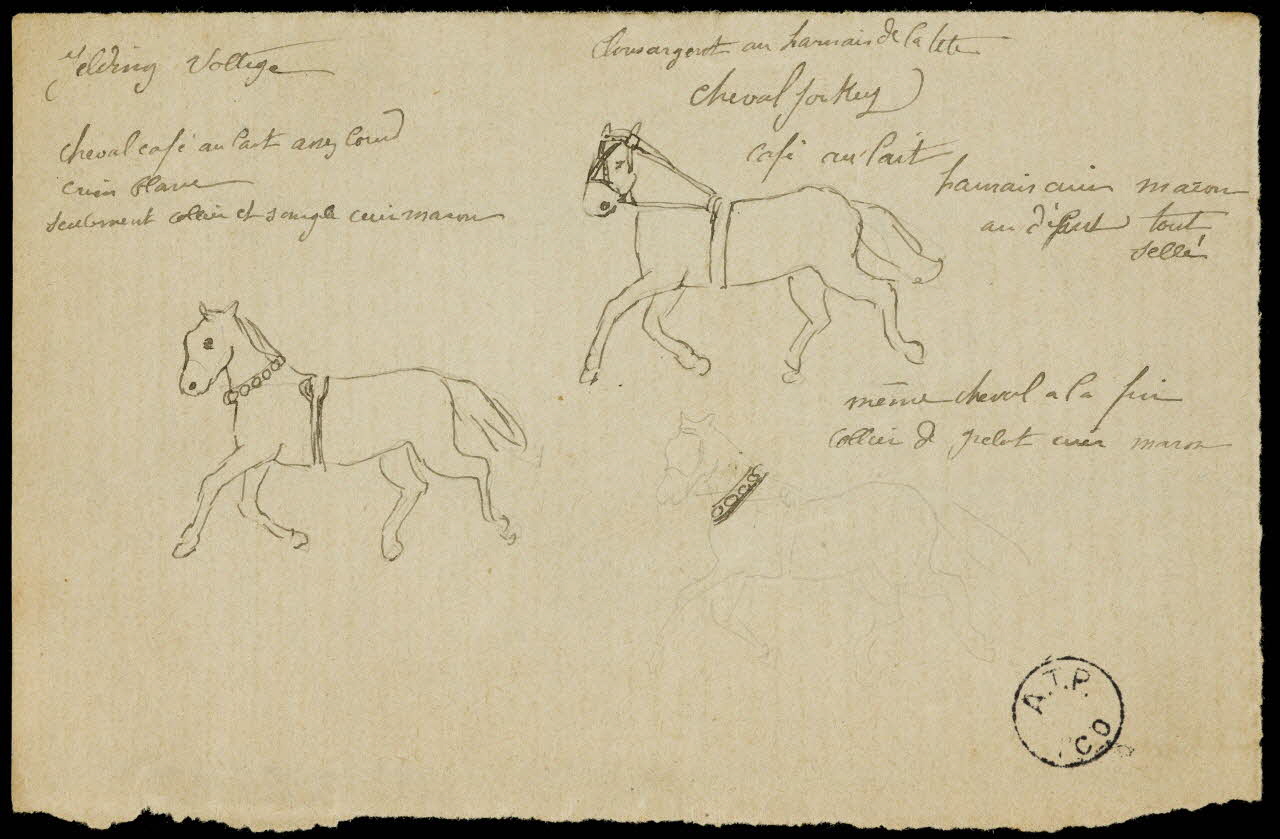 Yelding Voltige
cheval café au lait assez lourd
crin blanc
seulement collier et sangle cuir maron
clous argent au harnais de la tete
cheval jockey
café au lait
harnais cuir maron
au départ tout
sellé
même cheval a la fin
collier de grelot cuir maron
A.T.P.
CO